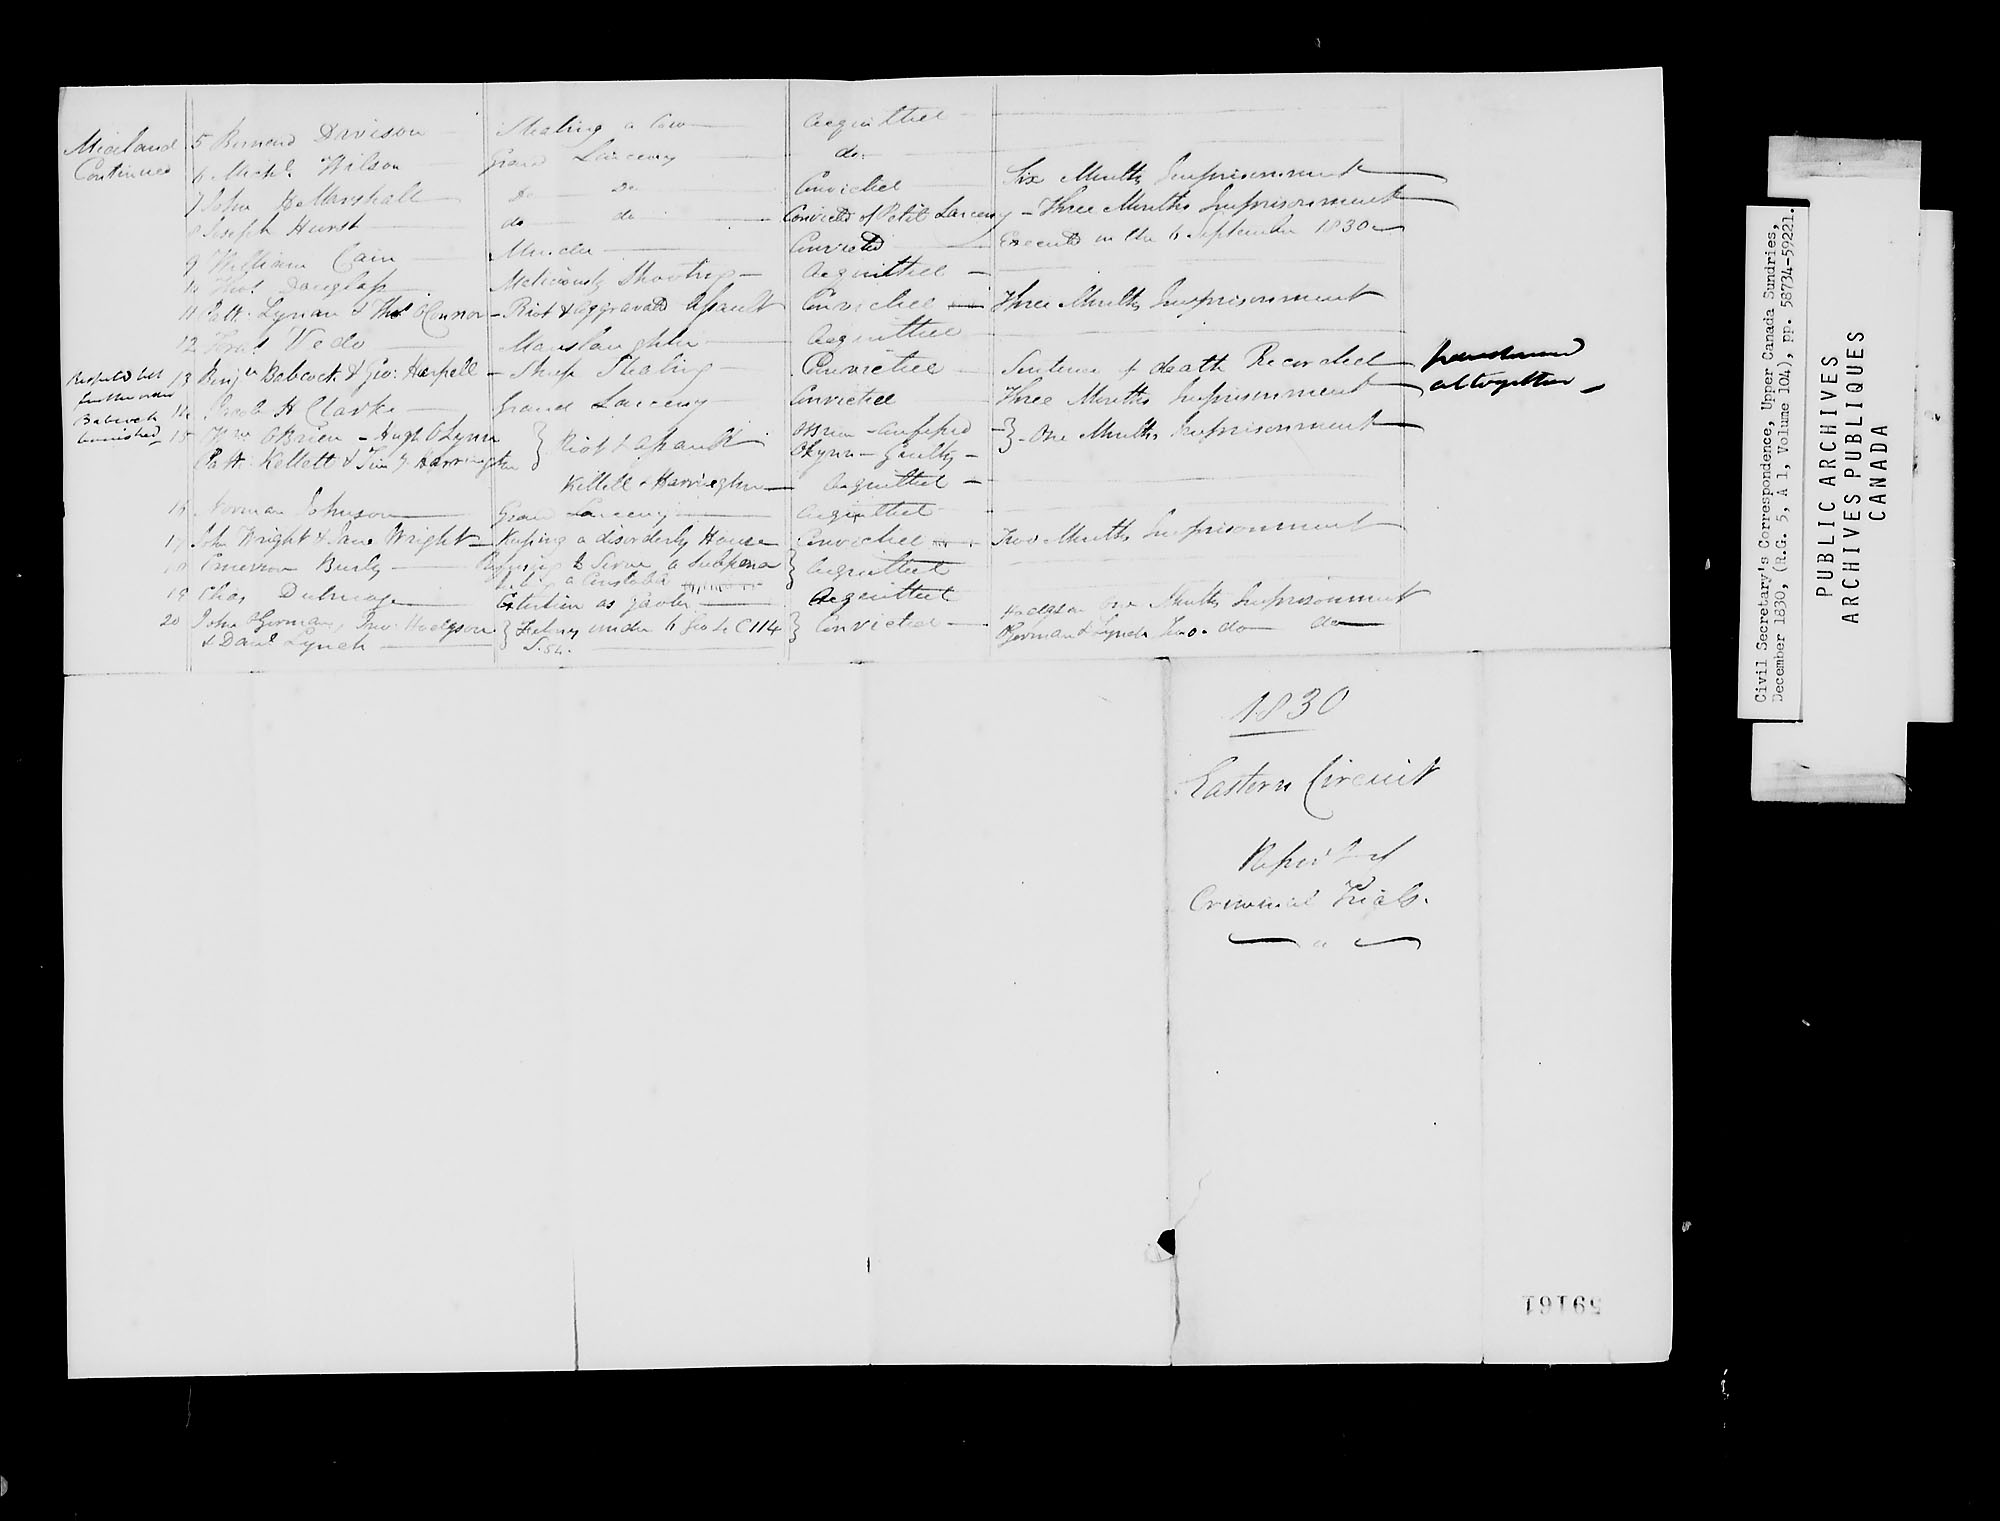 Midland 5 Bernard Davison Stealing a Cow Acquitted
Continued 6 Michl. Wilson Grand Larceny do.
7 John H Marshall Do Do Convicted Six Months Imprisonment
8 Joseph Hurst do do Convicted of Petit Larceny - Three Months Imprisonment
9 William Cain Murder Convicted Executed on the 6 September 1830
10 Thos Douglass Maliciously Shooting Acquitted
11 Patk. Lynan & Thos OConnor - Riot & aggravated Assault Convicted Three Months Imprisonment
12 Wedo Manslaughter Acquitted
Respited till 13 Benjn Babcock & Geo: Harpell - Sheep Stealing Convicted Sentence of death Recorded pardoned
further order altogether
14 Jacob H Clarke Grand Larceny Convicted Three Months Imprisonment
Babcock
banished 15 Wm OBrien - Hugh OLynn } Riot & assault OBrien - confessed } - One Months Imprisonment
Patk. Kellett & Tim Y. Harrington OLynn - Guilty -
Kellett & Harrington Acquitted
16 Norman Johnson Grand Larceny Acquitted
17 John Wright & Jane Wright Keeping a disorderly House Convicted Two Months Imprisonment
18 Emerson Burly Refusing to Serve a Subpoena } Acquitted
being a Constable
19 Chas Dulmage Extortion as Gaoler Acquitted
20 John OGorman, Jno: Hodgson } Felony under 6 Geo 4 C 114 } Convicted Hodgson One Months Imprisonment
& Danl Lynch S. 54. OGorman & Lynch Two do do
1830
Eastern Circuit
Report of
Criminal Trials.
59161
Civil Secretary's Correspondence, Upper Canada Sundries,
December 1830, (R.G. 5, A 1, Volume 104), pp. 58734-59221.
PUBLIC ARCHIVES
ARCHIVES PUBLIQUES
CANADA